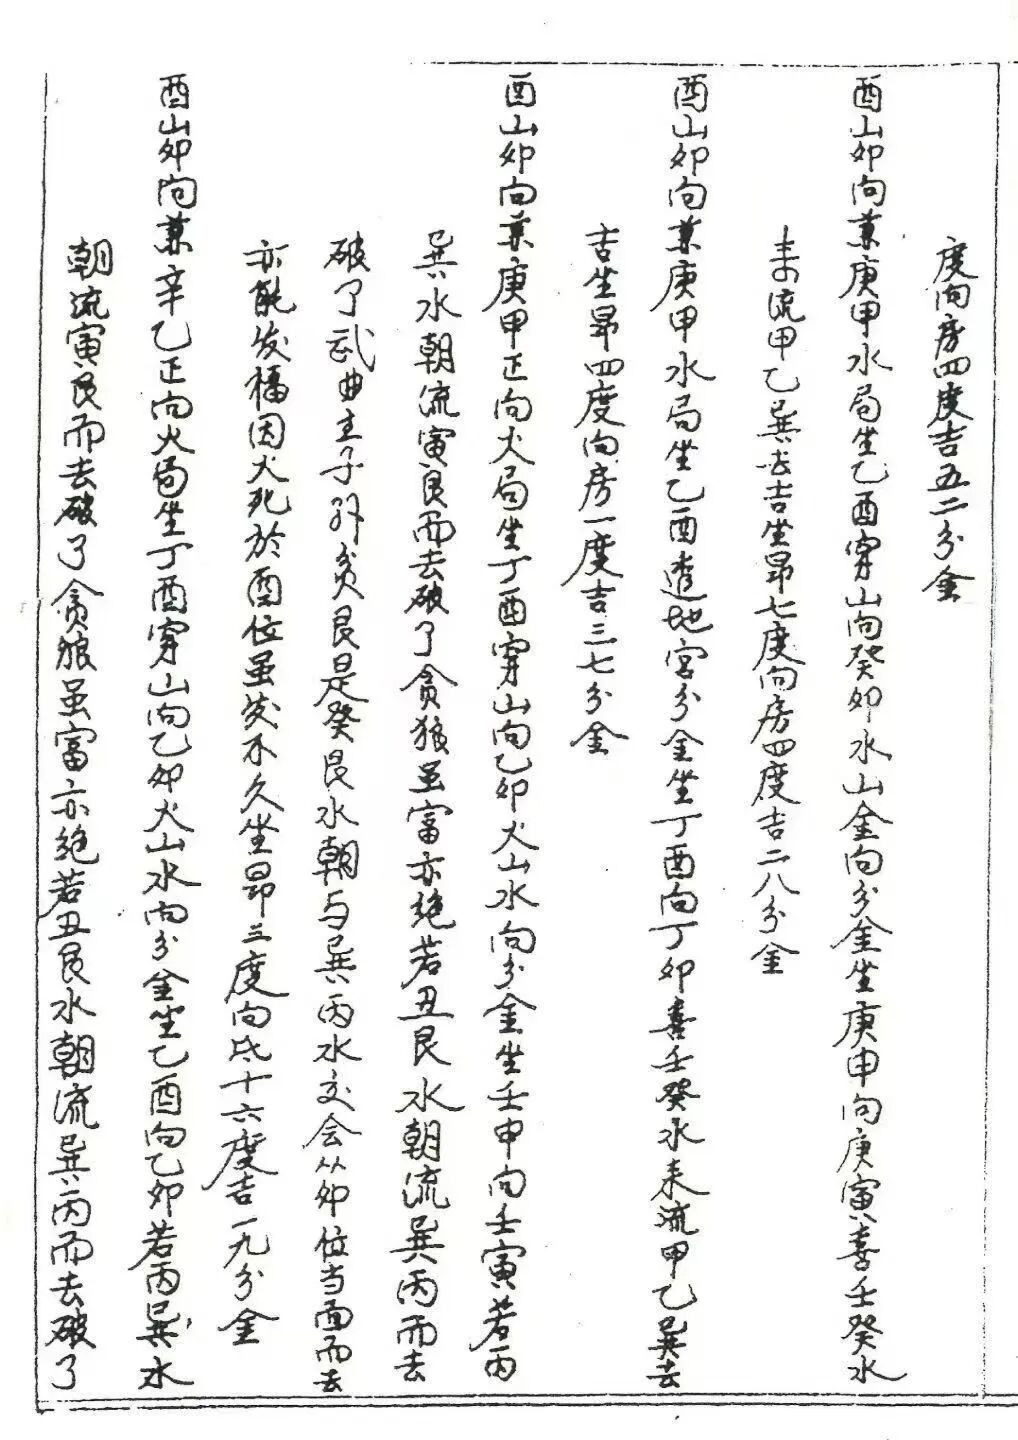 度向房四度吉五二分金
酉山卯向兼庚甲水局坐乙酉穿山向癸卯水山金向分金坐庚申向庚寅喜壬癸水
来流甲乙巽去吉坐昴七度向房四度吉二八分金
酉山卯向兼庚甲水局坐乙酉透地宫分金坐丁酉向丁卯喜壬癸水来流甲乙巽去
吉坐昴四度向房一度吉三七分金
酉山卯向兼庚甲正向火局坐丁酉穿山向乙卯火山水向分金坐壬申向壬寅若丙
巽水朝流寅艮而去破了贪狼虽富亦绝若丑艮水朝流巽丙而去
破了武曲主子孙贫艮是癸艮水朝与巽丙水交会从卯位当面而去
亦能发福因火死於酉位虽发不久坐昴三度向氐十六度吉一九分金
酉山卯向兼辛乙正向火局坐丁酉穿山向乙卯火山水向分金坐乙酉向乙卯若丙巽水
朝流寅艮而去破了贪狼虽富亦绝若丑艮水朝流巽丙而去破了